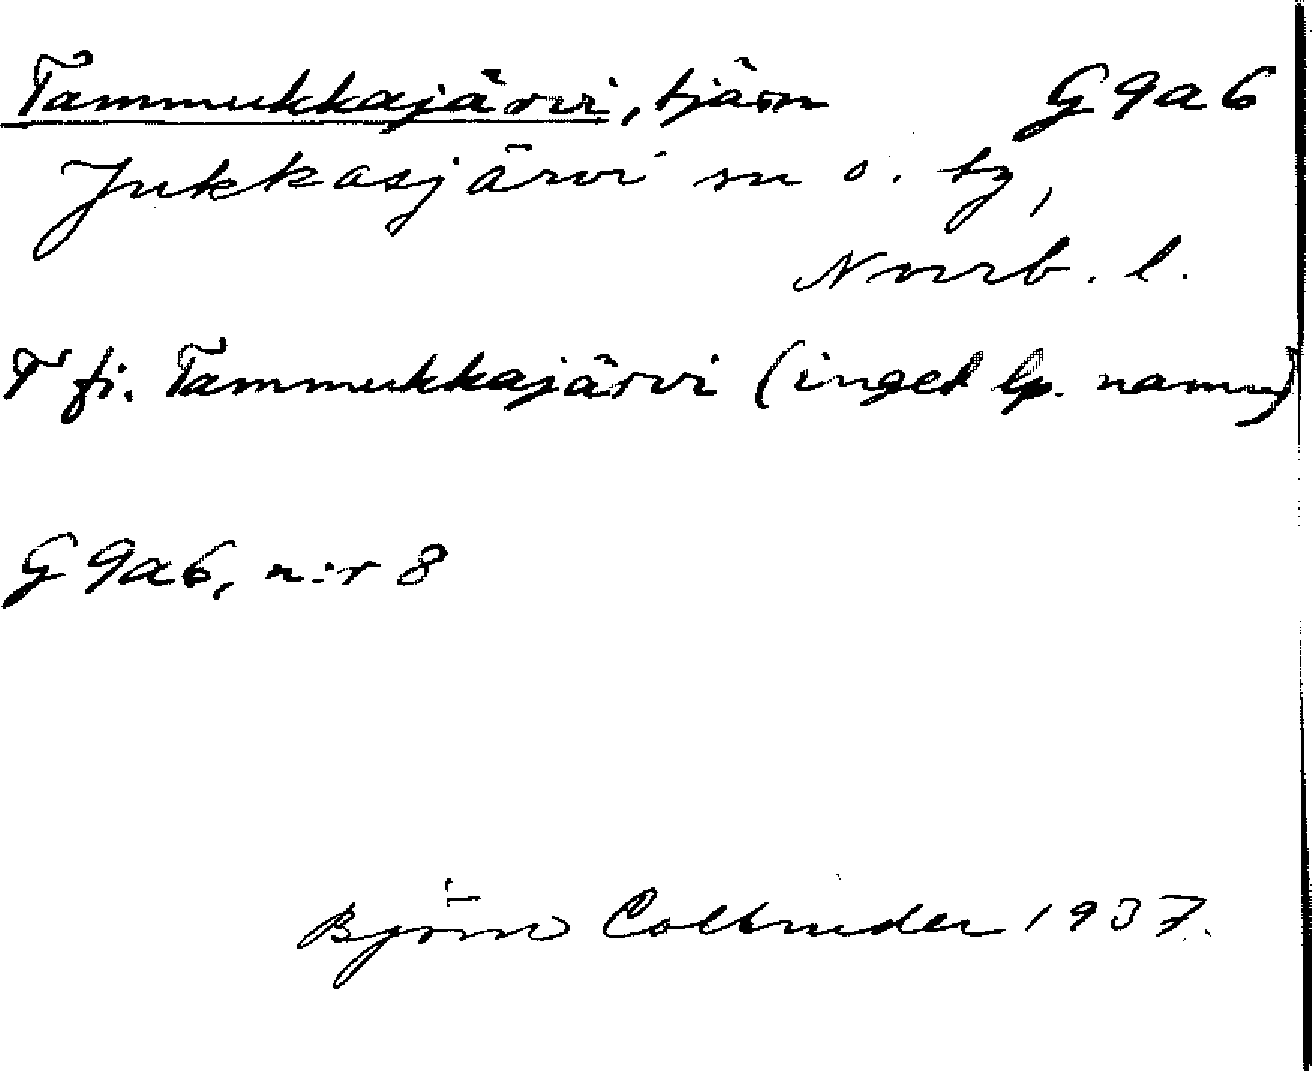 Tammukkajärvi, tjärn G9a6
Jukkasjärvi sn o. by,
Norrb. l.
T fi. Tammukkajärvi (inget lp. namn)
G9a6, n:r 8
Björn Collinder 1937.